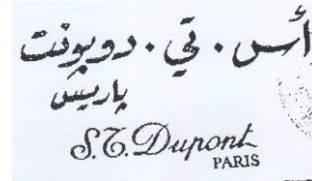 أس . تي . دوبونت
باريس
S.T. Dupont
PARIS